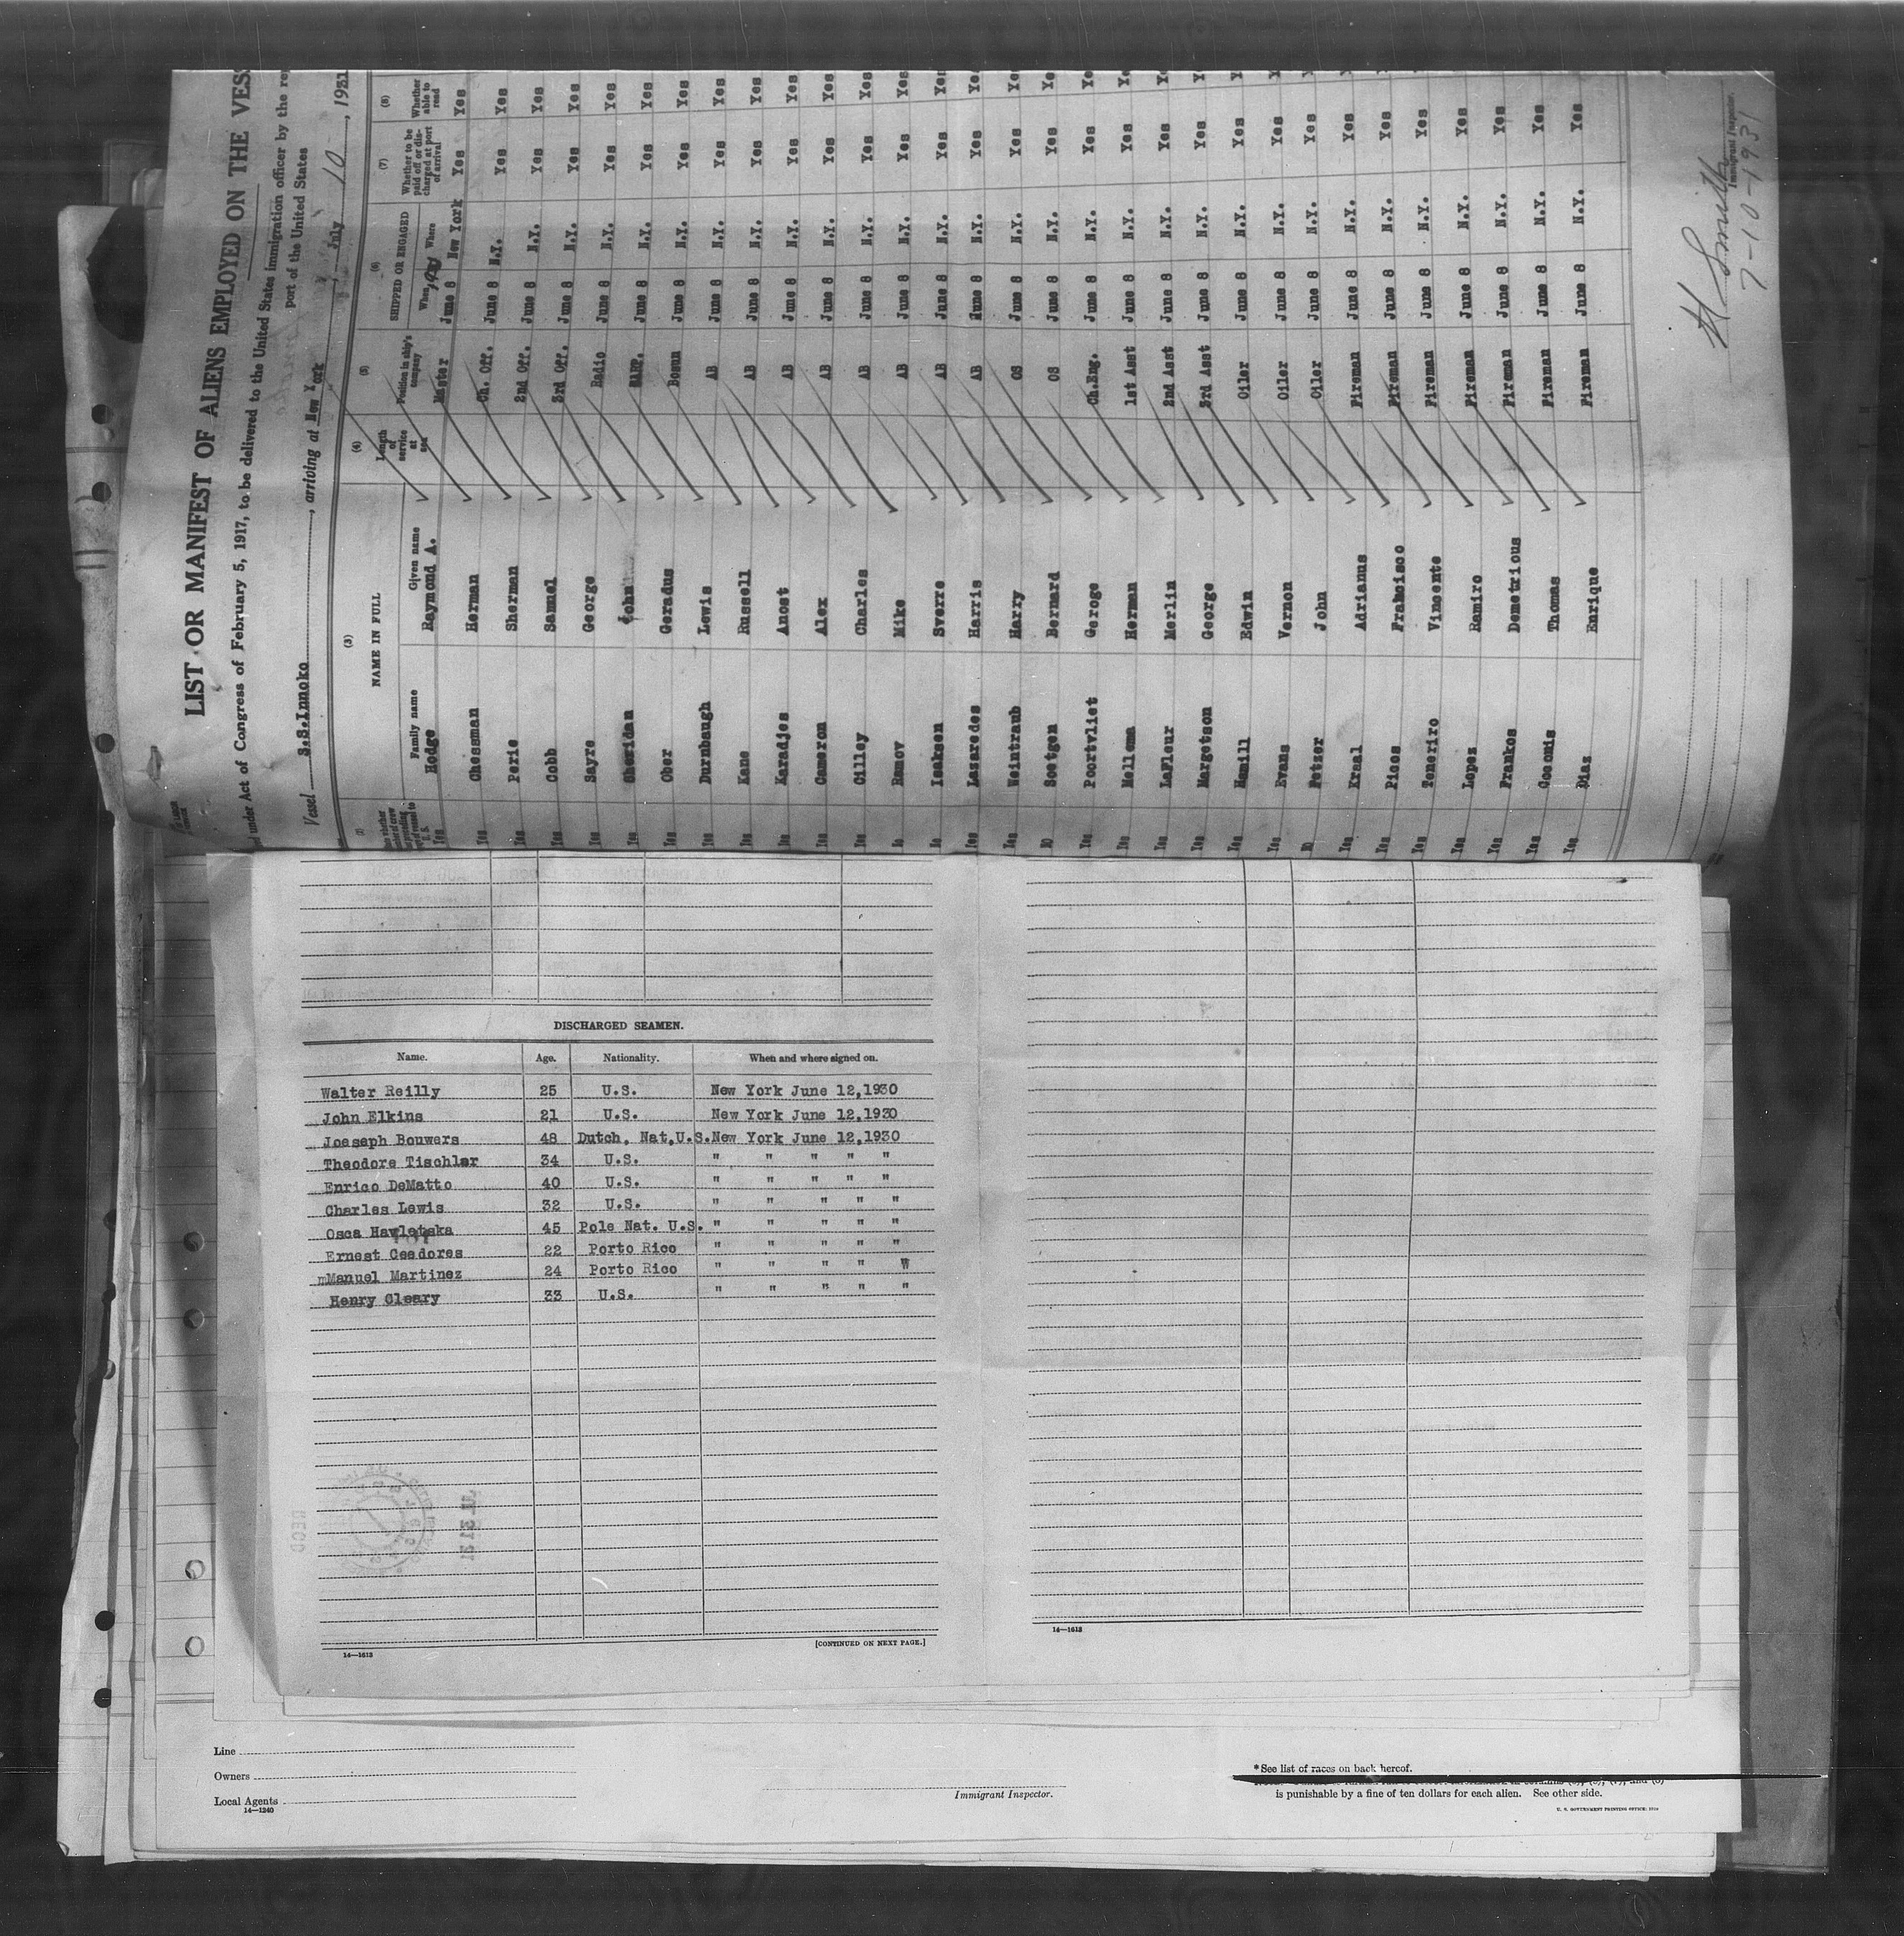 LIST OR MANIFEST OF ALIENS EMPLOYED ON THE VESS
under Act of Congress of February 5, 1917, to be delivered to the United States immigration officer by the rep
port of the United States
Vessel S.S.Innoko, arriving at New York, July 10, 1931
(3) (4) (5) (6) (7) (8)
NAME IN FULL Length of service at sea Position in ship's company SHIPPED OR ENGAGED Whether to be paid off or discharged at port of arrival Whether able to read
Family name Given name When Where
Yes Hodge Raymond A. Master June 8 New York Yes Yes
Yes Chessman Herman Ch. Off. June 8 N.Y. Yes Yes
Yes Perie Sherman 2nd Off. June 8 N.Y. Yes Yes
Yes Cobb Samuel 3rd Off. June 8 N.Y. Yes Yes
Yes Sayre George Radio June 8 N.Y. Yes Yes
Yes Sheridan John June 8 N.Y. Yes Yes
Yes Ober Geradus Bosun June 8 N.Y. Yes Yes
Yes Durnbaugh Lewis AB June 8 N.Y. Yes Yes
Yes Kane Russell AB June 8 N.Y. Yes Yes
Yes Karadjes Anost AB June 8 N.Y. Yes Yes
Yes Cameron Alex AB June 8 N.Y. Yes Yes
Yes Cilley Charles AB June 8 N.Y. Yes Yes
Romov Mike AB June 8 N.Y. Yes Yes
Isaksen Sverre AB June 8 N.Y. Yes Yes
Yes Lazaredes Harris AB June 8 N.Y. Yes Yes
Yes Weintraub Harry OS June 8 N.Y. Yes Ye
NO Soetgen Bernard OS June 8 N.Y. Yes Ye
Yes Poortvliet Geroge Ch.Eng. June 8 N.Y. Yes Ye
Yes Mellema Herman 1st Asst June 8 N.Y. Yes Ye
Yes LaFleur Merlin 2nd Asst June 8 N.Y. Yes Y
Yes Margetson George 3rd Asst June 8 N.Y. Yes Y
Yes Hamill Edwin Oiler June 8 N.Y. Yes Y
Yes Evans Vernon Oiler June 8 N.Y. Yes Y
NO Petzer John Oiler June 8 N.Y. Yes Y
Yes Kraal Adrianus Fireman June 8 N.Y. Yes
Yes Picos Framcisco Fireman June 8 N.Y. Yes
Yes Teneriro Vincente Fireman June 8 N.Y. Yes
Yes Lopez Ramiro Fireman June 8 N.Y. Yes
Yes Frankos Demetrious Fireman June 8 N.Y. Yes
Yes Coconis Thomas Fireman June 8 N.Y. Yes
Yes Diaz Enrique Fireman June 8 N.Y. Yes
H Smith
Immigrant Inspector.
7-10-1931
DISCHARGED SEAMEN.
Name. Age. Nationality. When and where signed on.
Walter Reilly 25 U.S. New York June 12,1930
John Elkins 21 U.S. New York June 12,1930
Joesaph Bouwers 48 Dutch, Nat,U.S. New York June 12,1930
Theodore Tischler 34 U.S. " " " " "
Enrico DeMatto 40 U.S. " " " " "
Charles Lewis 32 U.S. " " " " "
Osca 45 Pole Nat. U.S. " " " " "
Ernest Ceedores 22 Porto Rico " " " " "
mManuel Martinez 24 Porto Rico " " " " W
Henry Cleary 33 U.S. " " " " "
14—1613
[CONTINUED ON NEXT PAGE.]
14—1613
Line
Owners
Local Agents
14—1240
Immigrant Inspector.
*See list of races on back hereof.
is punishable by a fine of ten dollars for each alien. See other side.
U. S. GOVERNMENT PRINTING OFFICE: